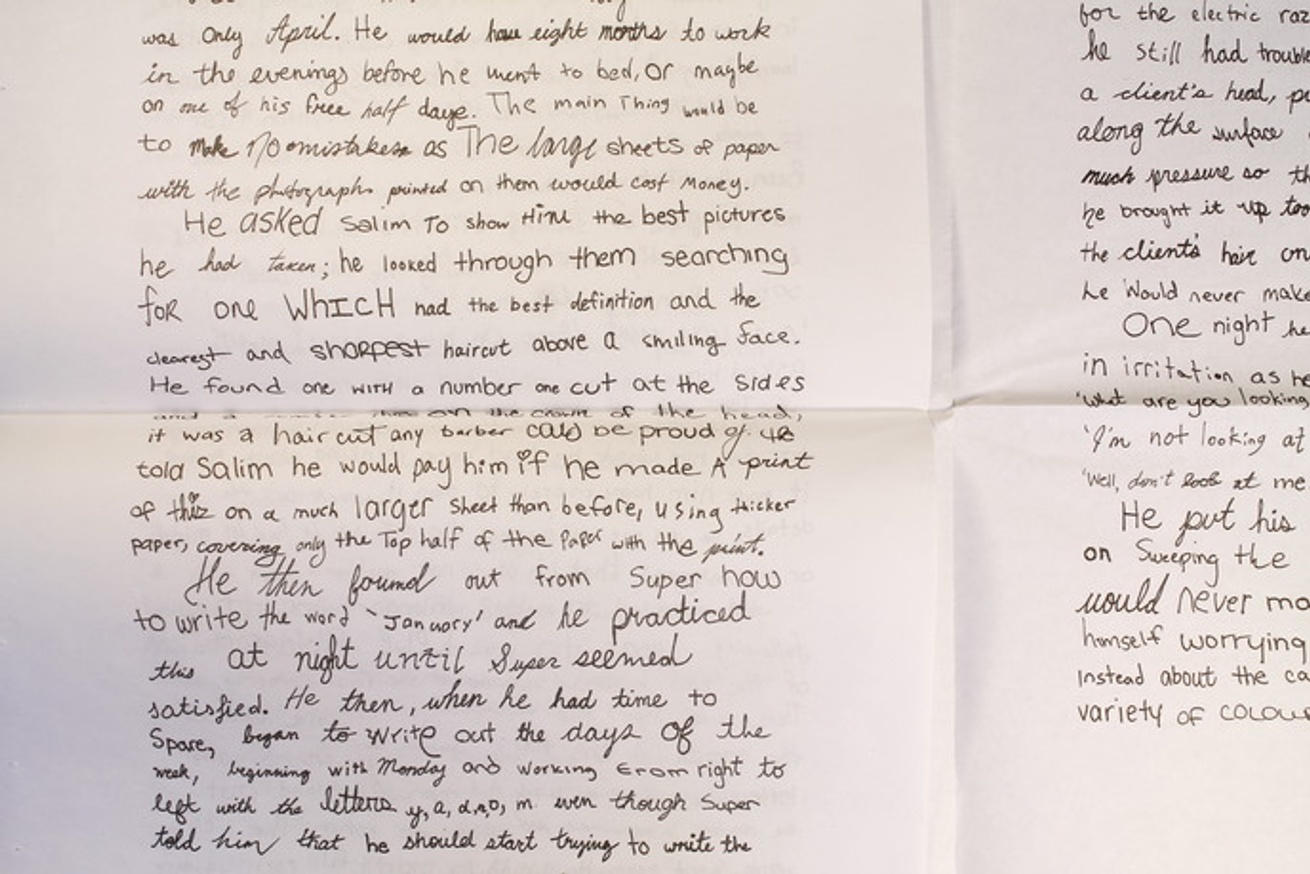 was only April. He would have eight months to work
in the evenings before he went to bed, or maybe
on one of his free half days. The main Thing would be
to make no mistakes as The large sheets of paper
with the photographs printed on them would cost money.
He asked Salim To show Him the best pictures
he had taken; he looked through them searching
for one WHICH had the best definition and the
clearest and sharpest haircut above a smiling face.
He found one with a number one cut at the sides
and a number two on the crown of the head,
it was a haircut any barber could be proud of. He
told Salim he would pay him if he made A print
of this on a much larger sheet than before, using thicker
paper, covering only the Top half of the Paper with the print.
He then found out from Super how
to write the word 'January' and he practiced
this at night until Super seemed
satisfied. He then, when he had time to
Spare, began to write out the days of the
week, beginning with Monday and working from right to
left with the letters y, a, d, n, o, m even though Super
told him that he should start trying to write the
for the electric raz
he still had trouble
a client's head, pu
along the surface
much pressure so th
he brought it up too
the client's hair on
he Would never make
One night he
in irritation as he
'What are you looking
'I'm not looking at
'Well, don't look at me
He put his
on Sweeping the
would never mo
himself worrying
Instead about the ca
variety of colou